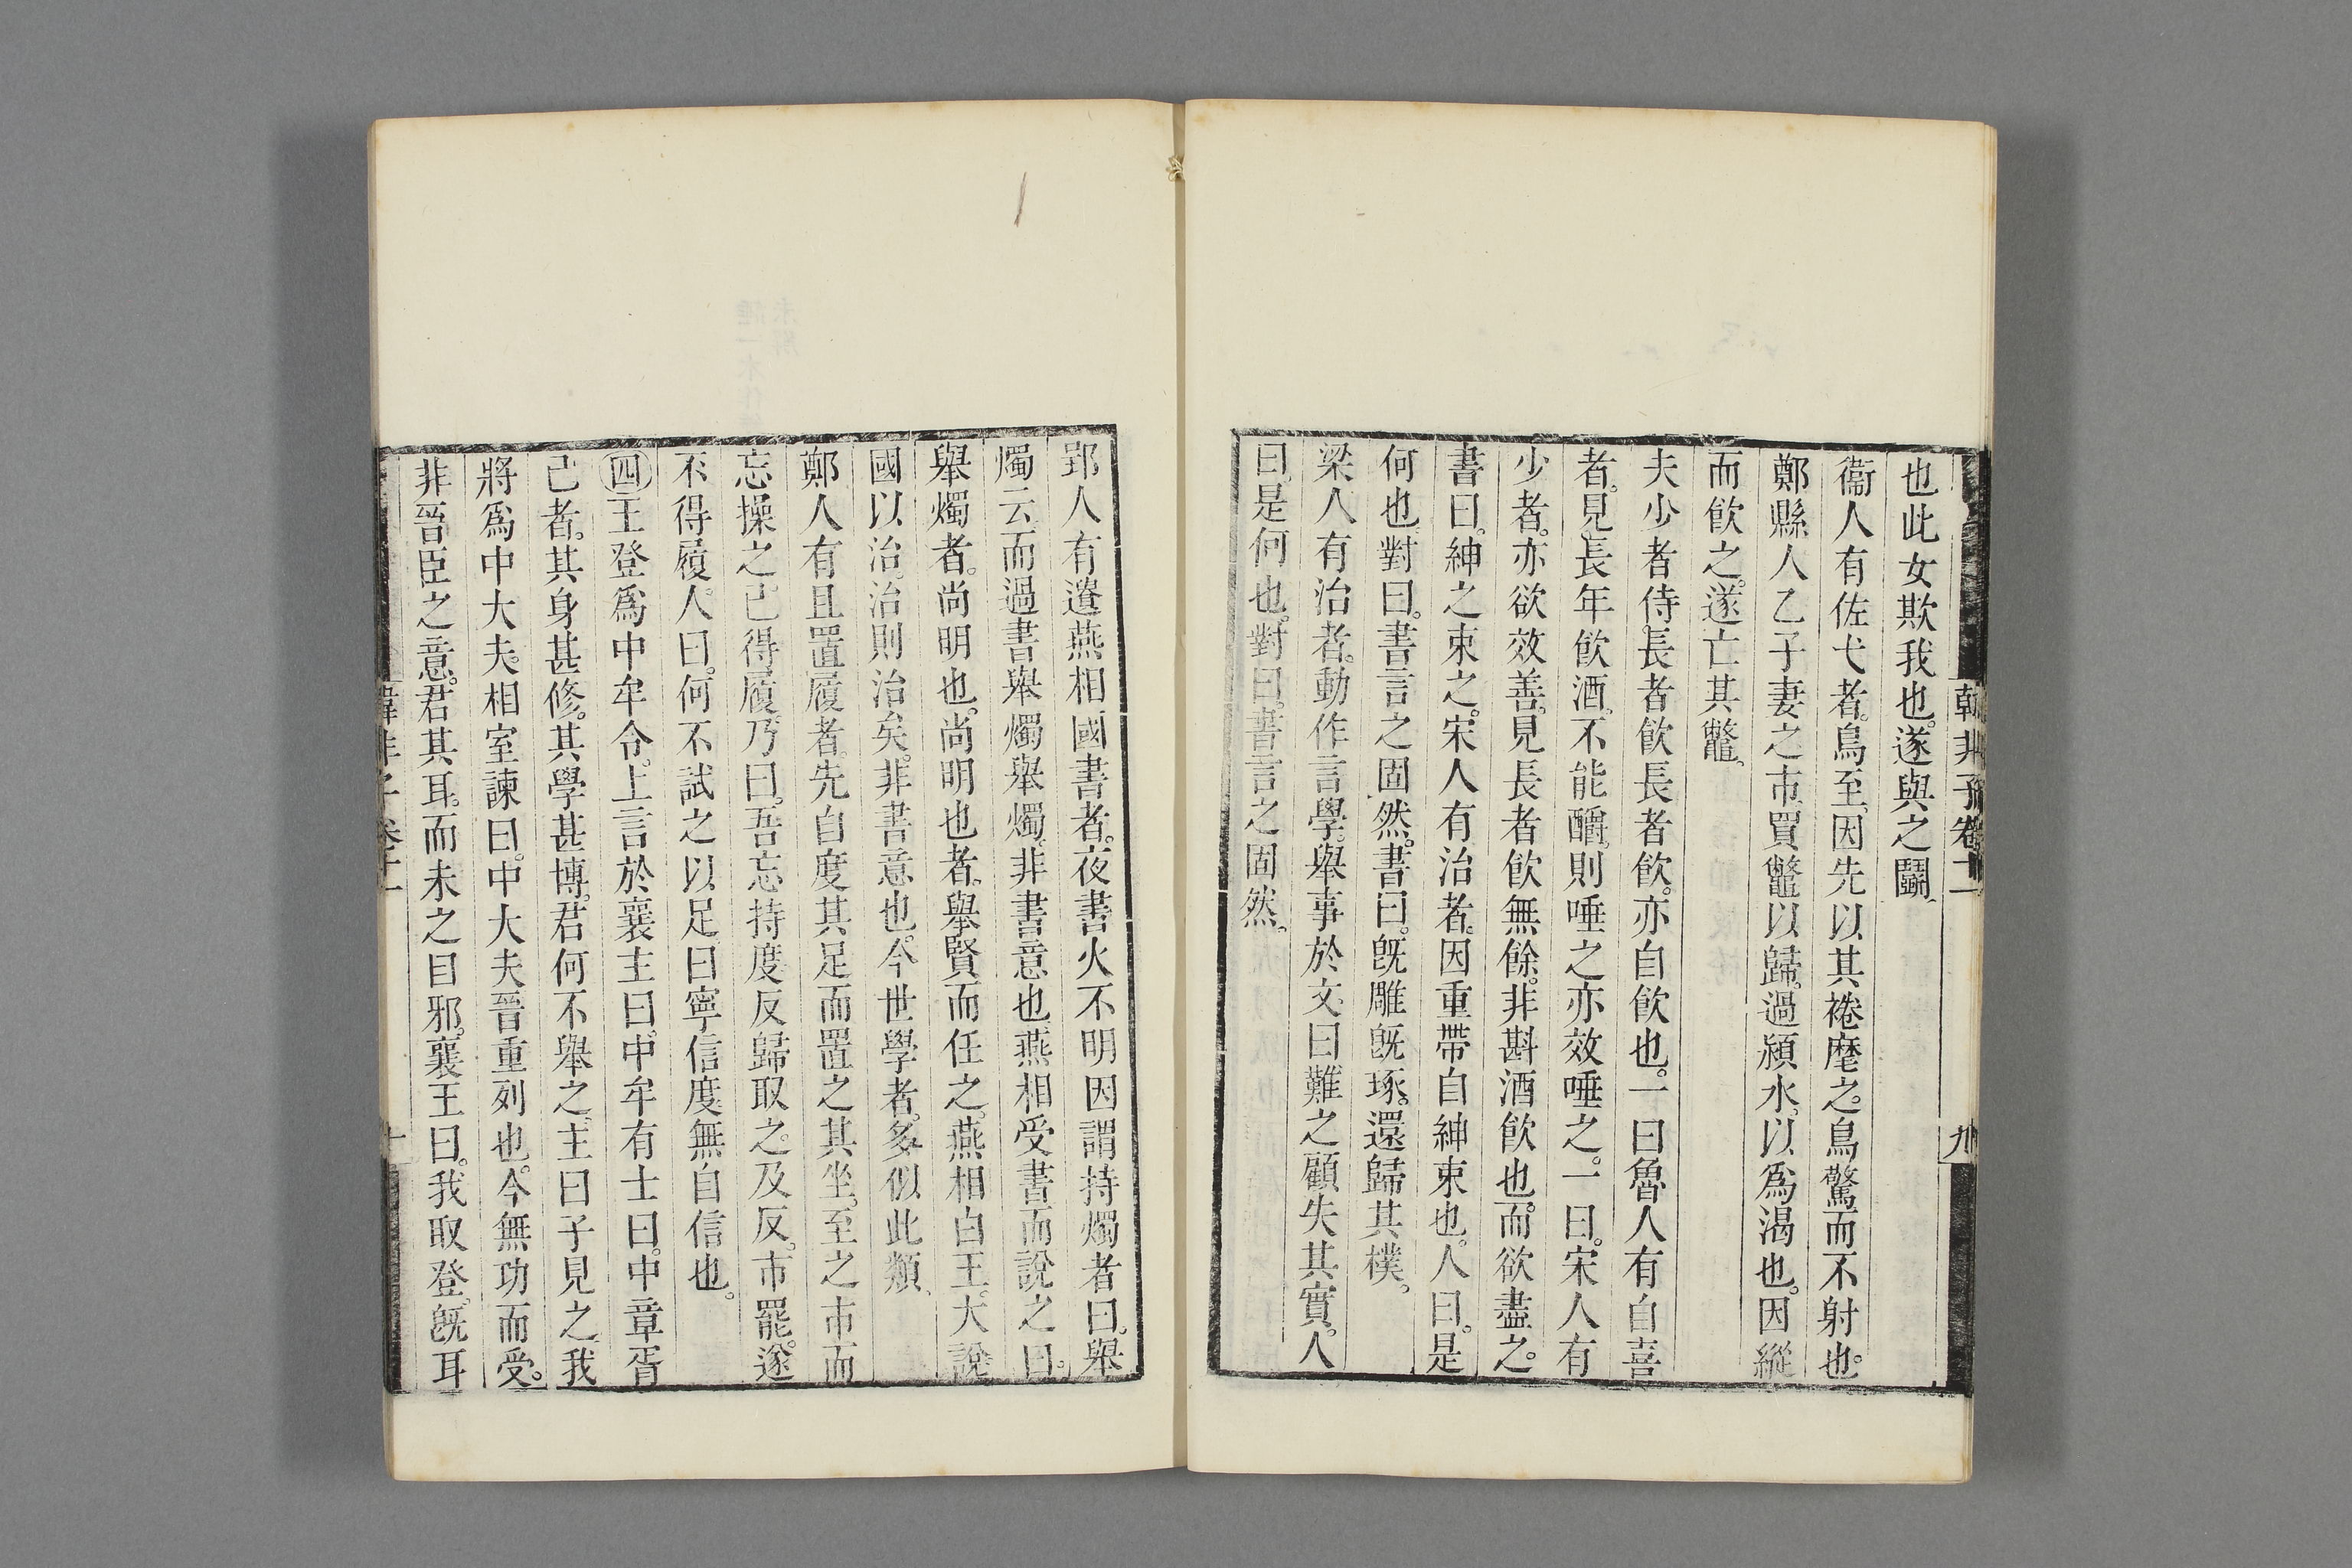 韓非子卷十一
九
也此女欺我也。遂與之鬬。
衞人有佐弋者。鳥至。因先以其裷麾之。鳥驚而不射也。
鄭縣人乙子妻之市。買鼈以歸。過潁水。以爲渴也。因縱
而飮之。遂亡其鼈。
夫少者侍長者飮。長者飮。亦自飮也。一曰魯人有自喜
者。見長年飮酒。不能釂。則唾之。亦效唾之。一曰。宋人有
少者。亦欲效善。見長者飮無餘。非斟酒飮也。而欲盡之。
書曰。紳之束之。宋人有治者。因重帶自紳束也。人曰。是
何也。對曰。書言之固然。書曰。旣雕旣琢。還歸其樸。
梁人有治者。動作言學。舉事於文。曰難之顧失其實。人
曰。是何也。對曰。書言之固然。
郢人有遺燕相國書者。夜書火不明因謂持燭者曰。舉
燭云。而過書舉燭舉燭。非書意也燕相受書而說之曰。
舉燭者。尚明也。尚明也者。舉賢而任之。燕相白王。大說
國以治。治則治矣。非書意也。今世學者。多似此類。
鄭人有且置履者。先自度其足而置之其坐。至之市而
忘操之。已得履。乃曰。吾忘持度反歸取之。及反。市罷。遂
不得履。人曰。何不試之以足。曰寧信度。無自信也。
四王登爲中牟令。上言於襄主曰。中牟有士曰。中章胥
己者。其身甚修。其學甚博。君何不舉之。主曰子見之。我
將爲中大夫。相室諫曰。中大夫晉重列也。今無功而受。
非晉臣之意。君其耳。而未之目邪。襄王曰。我取登。旣耳
韓非子卷十一